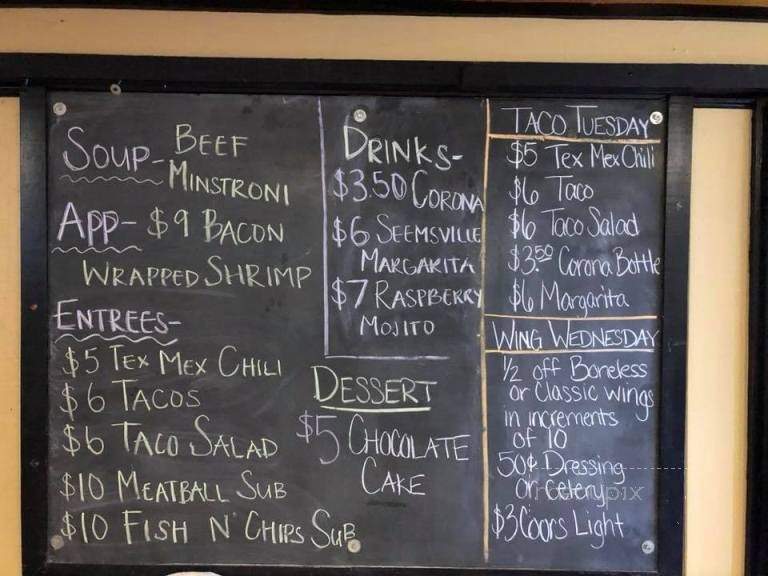 SOUP- BEEF
MINSTRONI
APP- $9 BACON
WRAPPED SHRIMP
ENTREES-
$5 TEX MEX CHILI
$6 TACOS
$6 TACO SALAD
$10 MEATBALL SUB
$10 FISH N' CHIPS SUB
DRINKS-
$3.50 CORONA
$6 SEEMSVILLE
MARGARITA
$7 RASPBERRY
MOJITO
DESSERT
$5 CHOCOLATE
CAKE
TACO TUESDAY
$5 Tex Mex Chili
$6 Taco
$6 Taco Salad
$3.50 Corona Bottle
$6 Margarita
WING WEDNESDAY
1/2 off Boneless
or Classic wings
in increments
of 10
50¢ Dressing
or Celery
$3 Coors Light